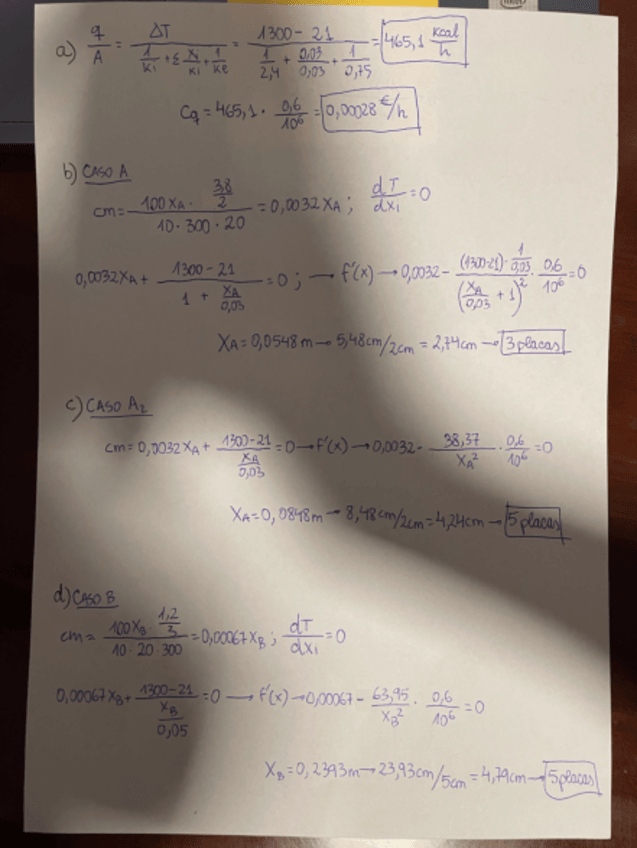 a) q/A = ΔT / (1/Ki + Σ Xi/Ki + 1/Ke) = (1300-21) / (1/2,4 + 0,03/0,03 + 1/0,75) = 465,1 kcal/h
Cq = 465,1 · 0,6/10⁶ = 0,00028 €/h
b) CASO A
cm = (100 XA · 3,8/2) / (10·300·20) = 0,0032 XA ; dT/dxi = 0
0,0032XA + (1300-21) / (1 + XA/0,03) = 0 ; → f'(x) → 0,0032 - ((1300-21) · 1/0,03) / (XA/0,03 + 1)² · 0,6/10⁶ = 0
XA = 0,0548 m → 5,48cm/2cm = 2,74cm → 3 placas
c) CASO A₂
cm = 0,0032 XA + (1300-21) / (XA/0,03) = 0 → f'(x) → 0,0032 - 38,37/XA² · 0,6/10⁶ = 0
XA = 0,0848m → 8,48cm/2cm = 4,24cm → 5 placas
d) CASO B
cm = (100XB · 1,2/3) / (10·20·300) = 0,00067XB ; dT/dxi = 0
0,00067XB + (1300-21) / (XB/0,05) = 0 → f'(x) → 0,00067 - 63,95/XB² · 0,6/10⁶ = 0
XB = 0,2393m → 23,93cm/5cm = 4,79cm → 5placas